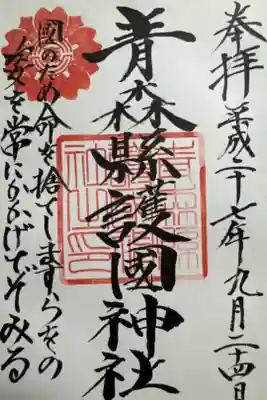 奉拝 平成二十七年九月二十四日
青森縣護國神社
國のため命を捨てしますらをの
を常にかかげてそみる